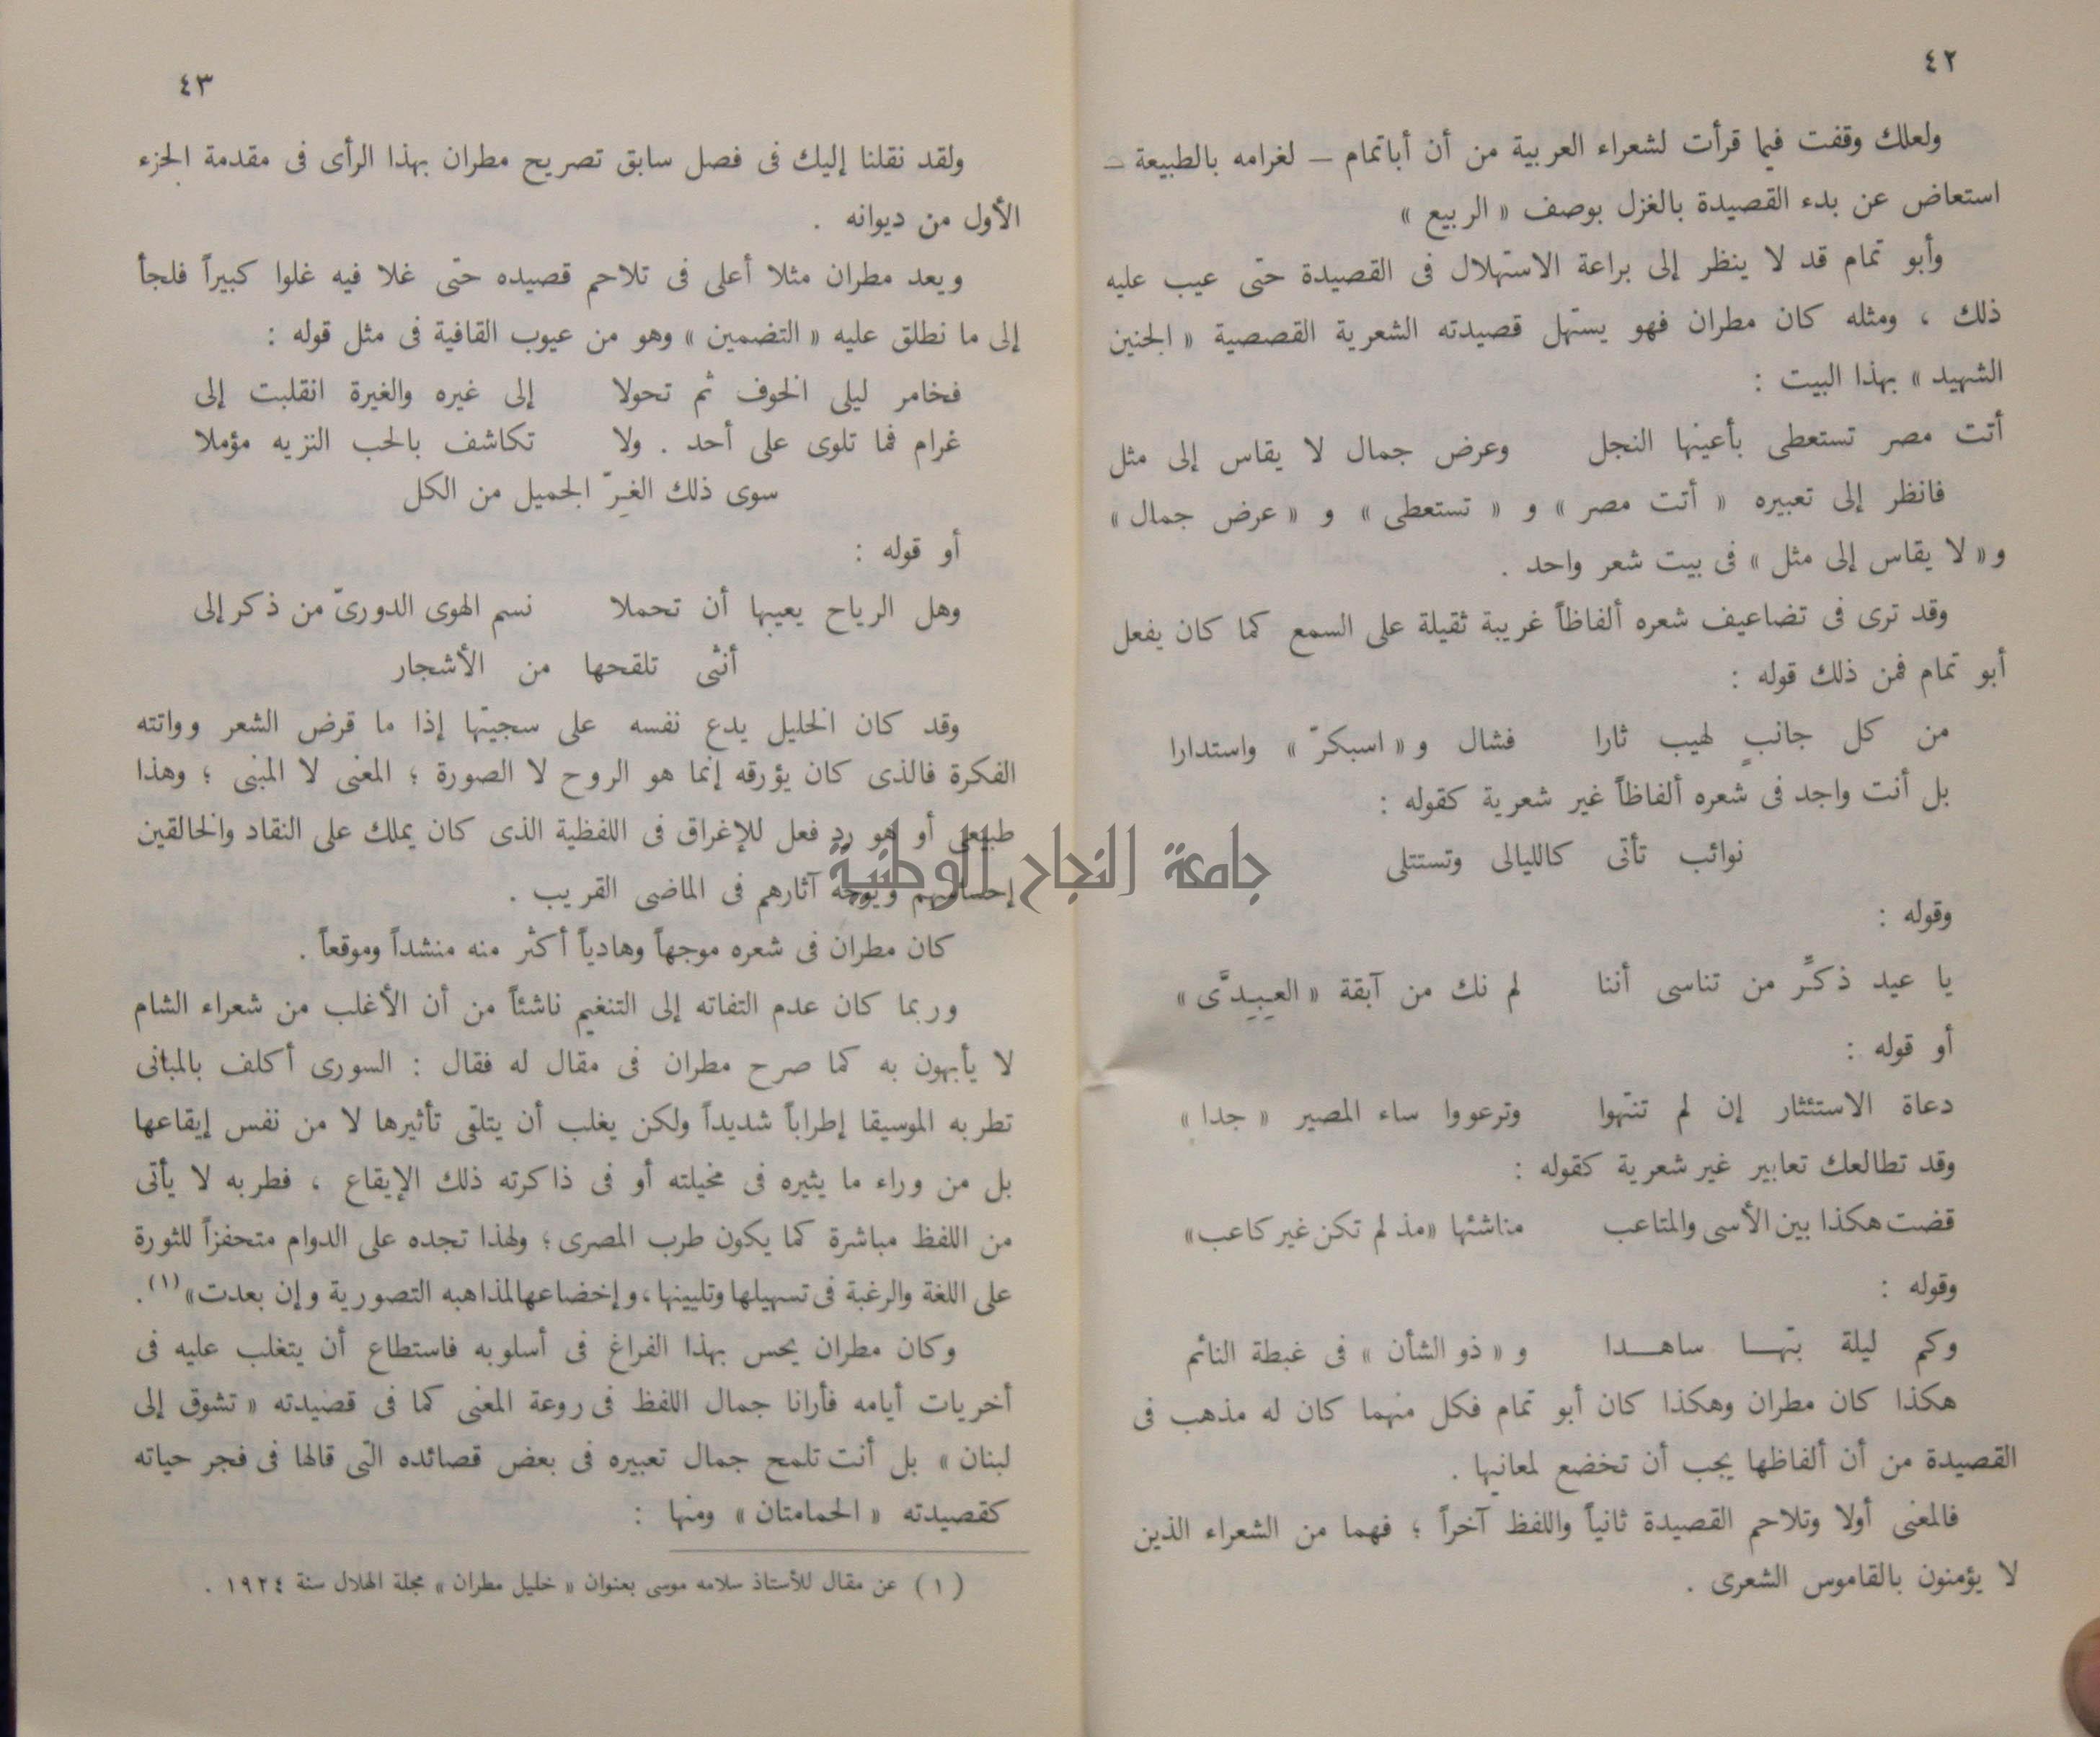 ٤٢
ولعلك وقفت فيما قرأت لشعراء العربية من أن أباتمام — لغرامه بالطبيعة —
استعاض عن بدء القصيدة بالغزل بوصف « الربيع »
وأبو تمام قد لا ينظر إلى براعة الاستهلال فى القصيدة حتى عيب عليه
ذلك ، ومثله كان مطران فهو يستهل قصيدته الشعرية القصصية « الجنين
الشهيد » بهذا البيت :
أتت مصر تستعطى بأعينها النجل وعرض جمال لا يقاس إلى مثل
فانظر إلى تعبيره « أتت مصر » و « تستعطى » و « عرض جمال »
و « لا يقاس إلى مثل » فى بيت شعر واحد .
وقد ترى فى تضاعيف شعره ألفاظاً غريبة ثقيلة على السمع كما كان يفعل
أبو تمام فمن ذلك قوله :
من كل جانبٍ لهيب ثارا فشال و « اسبكرّ » واستدارا
بل أنت واجد فى شعره ألفاظاً غير شعرية كقوله :
نوائب تأتى كالليالى وتستتلى
وقوله :
يا عيد ذكِّر من تناسى أننا لم نك من آبقة « العِبِدَّى »
أو قوله :
دعاة الاستئثار إن لم تنتهوا وترعووا ساء المصير « جدا »
وقد تطالعك تعابير غير شعرية كقوله :
قضت هكذا بين الأسى والمتاعب مناشئها «مذ لم تكن غير كاعب»
وقوله :
وكم ليلة بتهــا ساهــدا و « ذو الشأن » فى غبطة النائم
هكذا كان مطران وهكذا كان أبو تمام فكل منهما كان له مذهب فى
القصيدة من أن ألفاظها يجب أن تخضع لمعانيها .
فالمعنى أولا وتلاحم القصيدة ثانياً واللفظ آخراً ؛ فهما من الشعراء الذين
لا يؤمنون بالقاموس الشعرى .
٤٣
ولقد نقلنا إليك فى فصل سابق تصريح مطران بهذا الرأى فى مقدمة الجزء
الأول من ديوانه .
ويعد مطران مثلا أعلى فى تلاحم قصيده حتى غلا فيه غلوا كبيراً فلجأ
إلى ما نطلق عليه « التضمين » وهو من عيوب القافية فى مثل قوله :
فخامر ليلى الخوف ثم تحولا إلى غيره والغيرة انقلبت إلى
غرام فما تلوى على أحد . ولا تكاشف بالحب النزيه مؤملا
سوى ذلك الغِرّ الجميل من الكل
أو قوله :
وهل الرياح يعيبها أن تحملا نسم الهوى الدورىّ من ذكر إلى
أنثى تلقحها من الأشجار
وقد كان الخليل يدع نفسه على سجيتها إذا ما قرض الشعر وواتته
الفكرة فالذى كان يؤرقه إنما هو الروح لا الصورة ؛ المعنى لا المبنى ؛ وهذا
طبيعى أو هو رد فعل للإغراق فى اللفظية الذى كان يملك على النقاد والخالقين
إحساسهم ويوجه آثارهم فى الماضى القريب .
جامعة النجاح الوطنية
كان مطران فى شعره موجهاً وهادياً أكثر منه منشداً وموقعاً .
وربما كان عدم التفاته إلى التنغيم ناشئاً من أن الأغلب من شعراء الشام
لا يأبهون به كما صرح مطران فى مقال له فقال : السورى أكلف بالمبانى
تطربه الموسيقا إطراباً شديداً ولكن يغلب أن يتلقى تأثيرها لا من نفس إيقاعها
بل من وراء ما يثيره فى مخيلته أو فى ذاكرته ذلك الإيقاع ، فطربه لا يأتى
من اللفظ مباشرة كما يكون طرب المصرى ؛ ولهذا تجده على الدوام متحفزاً للثورة
على اللغة والرغبة فى تسهيلها وتليينها ، وإخضاعها لمذاهبه التصورية وإن بعدت» (١) .
وكان مطران يحس بهذا الفراغ فى أسلوبه فاستطاع أن يتغلب عليه فى
أخريات أيامه فأرانا جمال اللفظ فى روعة المعنى كما فى قصيدته « تشوق إلى
لبنان » بل أنت تلمح جمال تعبيره فى بعض قصائده التى قالها فى فجر حياته
كقصيدته « الحمامتان » ومنها :
(١) عن مقال للأستاذ سلامه موسى بعنوان « خليل مطران » مجلة الهلال سنة ١٩٢٤ .